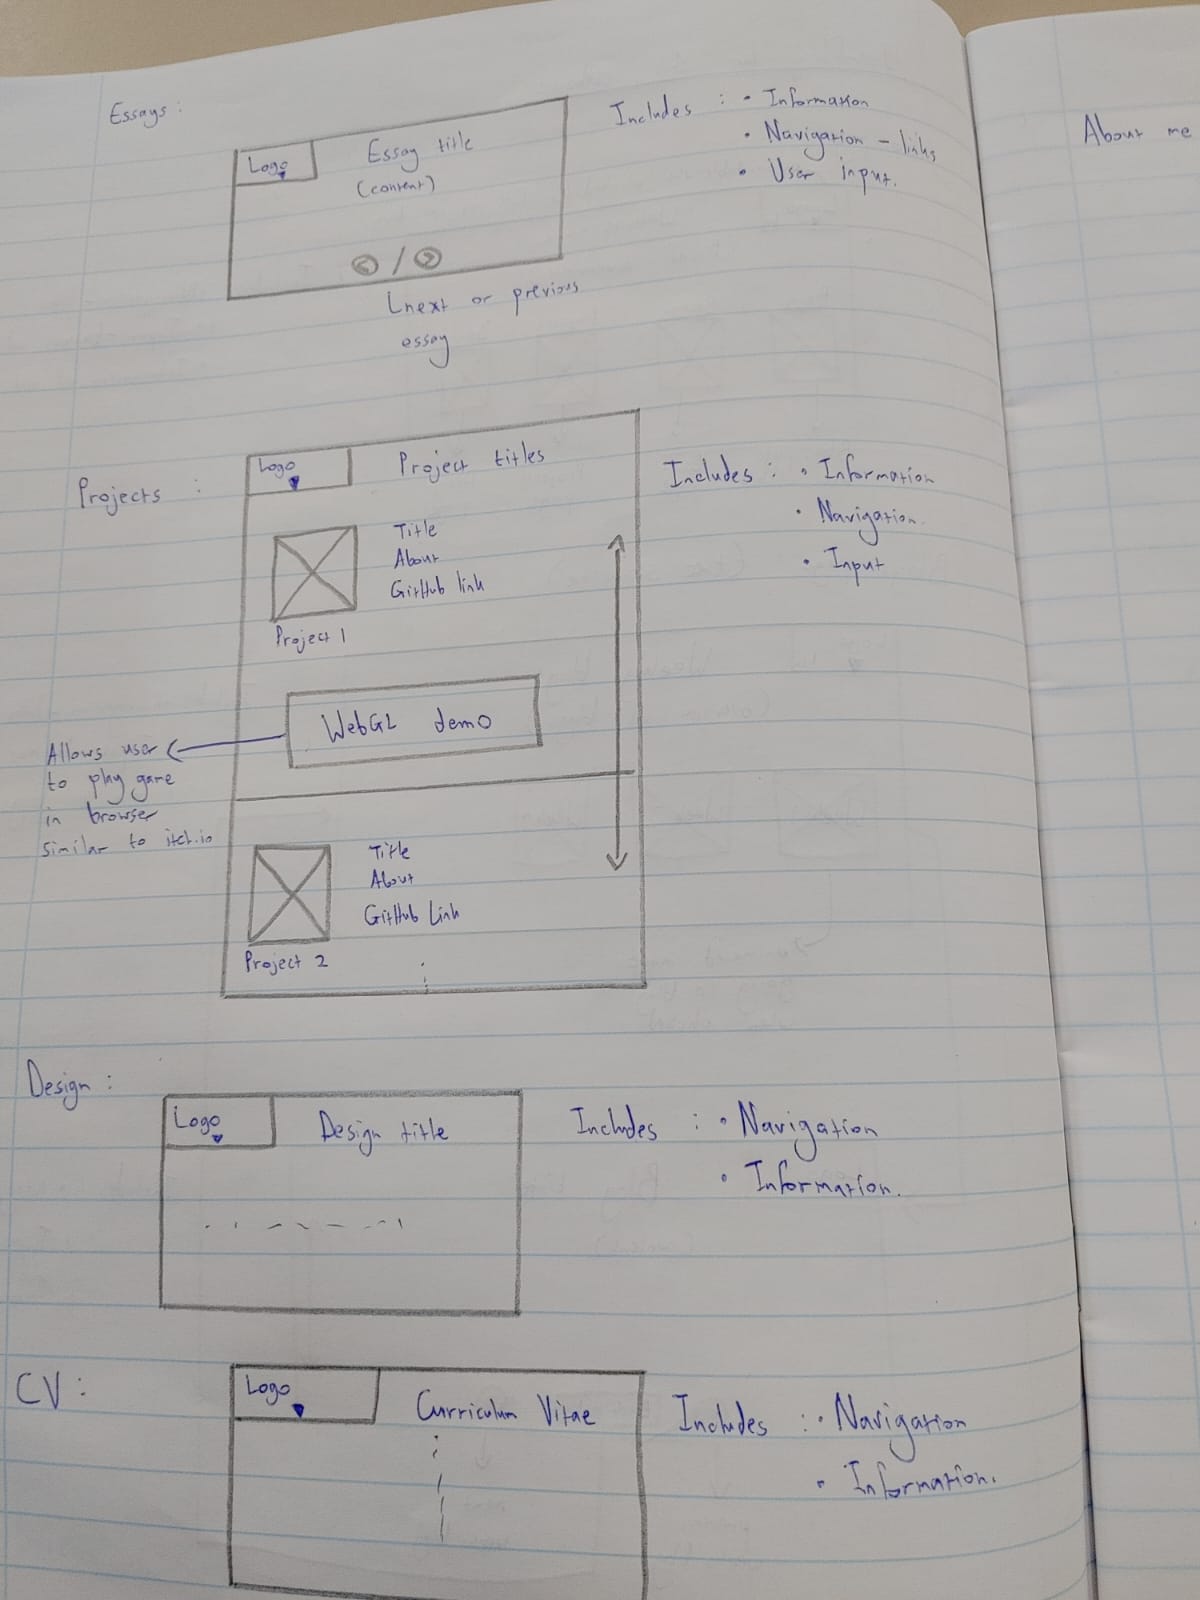 Essays :
Logo
Essay title
(content)
< / >
next or previous
essay
Includes : • Information
• Navigation - links
• User input.
About me
Projects :
Logo
Project titles
Title
About
GitHub link
Project 1
WebGL demo
Allows user
to play game
in browser
similar to itch.io
Title
About
GitHub Link
Project 2
Includes : • Information
• Navigation.
• Input
Design :
Logo
Design title
Includes : • Navigation
• Information.
CV :
Logo
Curriculum Vitae
Includes : • Navigation
• Information.